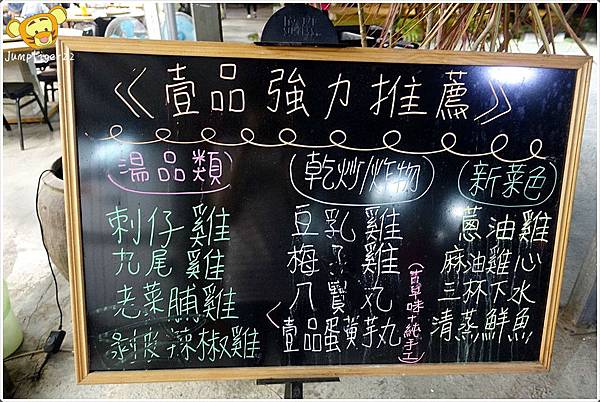 JumpTiger22
《壹品強力推薦》
湯品類
刺仔雞
九尾雞
老菜脯雞
剝皮辣椒雞
乾炒/炸物
豆乳雞
梅子雞
八寶丸
壹品蛋黃芋丸
(古早味+純手工)
新菜色
蔥油雞
麻油雞心
三杯下水
清蒸鮮魚